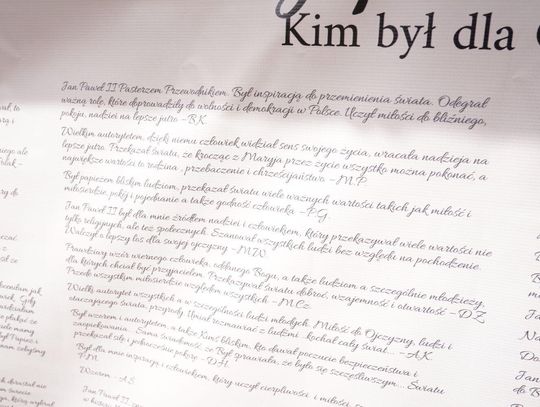 Kim był dla
Jan Paweł II Pasterzem Przewodnikiem. Był inspiracją do przemienienia świata. Odegrał
ważną rolę, które doprowadziły do wolności i demokracji w Polsce. Uczył miłości do bliźniego,
pokoju, nadziei na lepsze jutro – B.K.
Wielkim autorytetem, dzięki niemu człowiek widział sens swojego życia, wracała nadzieja na
lepsze jutro. Przekazał światu, że krocząc z Maryją przez życie wszystko można pokonać, a
największe wartości to rodzina, przebaczenie i chrześcijaństwo. – M.P.
Był papieżem bliskim ludziom, przekazał światu wiele ważnych wartości takich jak miłość i
miłosierdzie, pokój i pojednanie a także godność człowieka – P.G.
Jan Paweł II był dla mnie źródłem nadziei i człowiekiem, który przekazywał wiele wartości nie
tylko religijnych, ale też społecznych. Szanował wszystkich ludzi bez względu na pochodzenie.
Walczył o lepszy los dla swojej ojczyzny – M.W.
Prawdziwy wzór wiernego człowieka, oddanego Bogu, a także ludziom a szczególnie młodzieży,
dla których chciał być przyjacielem. Przekazywał światu dobroć, wzajemność i otwartość – D.Z.
Przede wszystkim miłosierdzie względem wszystkich – M.Cz.
Wielki autorytet wszystkich a w szczególności ludzi młodych. Miłość do Ojczyzny, ludzi i
otaczającego świata, przyrody. Umiał rozmawiać z ludźmi, kochał cały świat... – A.K.
Był wzorem i autorytetem, a także Kimś bliskim, kto dawał poczucie bezpieczeństwa i
zaopiekowania. Sama świadomość, że Był sprawiała, że było się szczęśliwszym... Światu
przekazał siłę i jednocześnie pokorę – D.H.
Był dla mnie inspiracją i człowiekiem, który uczył cierpliwości i miłości,
P.M.
Wzorem – A.S.
Jan Paweł II